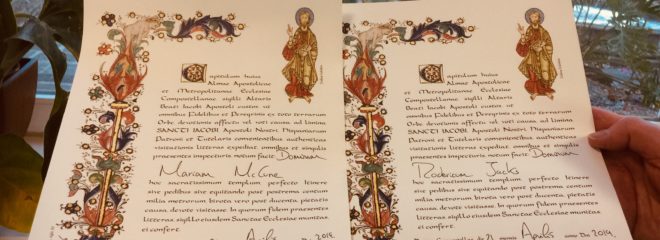 Capitulum huius
Almae Apostolicae
et Metropolitanae Ecclesiae
Compostellanae sigilli Altaris
Beati Jacobi Apostoli custos ut
omnibus Fidelibus et Peregrinis ex toto terrarum
Orbe devotionis affectu vel voti causa ad limina
SANCTI IACOBI Apostoli Nostri Hispaniarum
Patroni et Tutelaris convenientibus authenticas
visitationis litteras expediat omnibus et singulis
praesentes inspecturis notum facit Dominam
Mariam McCune
hoc sacratissimum templum perfecto Itinere
sive pedibus sive equitando post postrema centum
milia metrorum birota vero post ducenta, pietatis
causa, devote visitasse. In quorum fidem praesentes
litteras sigillo eiusdem Sanctae Ecclesiae munitas
ei confero.
Aprilis anno Dni 2019.
Capitulum huius
Almae Apostolicae
et Metropolitanae Ecclesiae
Compostellanae sigilli Altaris
Beati Jacobi Apostoli custos ut
omnibus Fidelibus et Peregrinis ex toto terrarum
Orbe devotionis affectu vel voti causa ad limina
SANCTI IACOBI Apostoli Nostri Hispaniarum
Patroni et Tutelaris convenientibus authenticas
visitationis litteras expediat omnibus et singulis
praesentes inspecturis notum facit Dominum
Jacks
hoc sacratissimum templum perfecto Itinere
sive pedibus sive equitando post postrema centum
milia metrorum birota vero post ducenta, pietatis
causa, devote visitasse. In quorum fidem praesentes
litteras sigillo eiusdem Sanctae Ecclesiae munitas
ei confero.
die 21 mensis Aprilis anno Dni 2019.